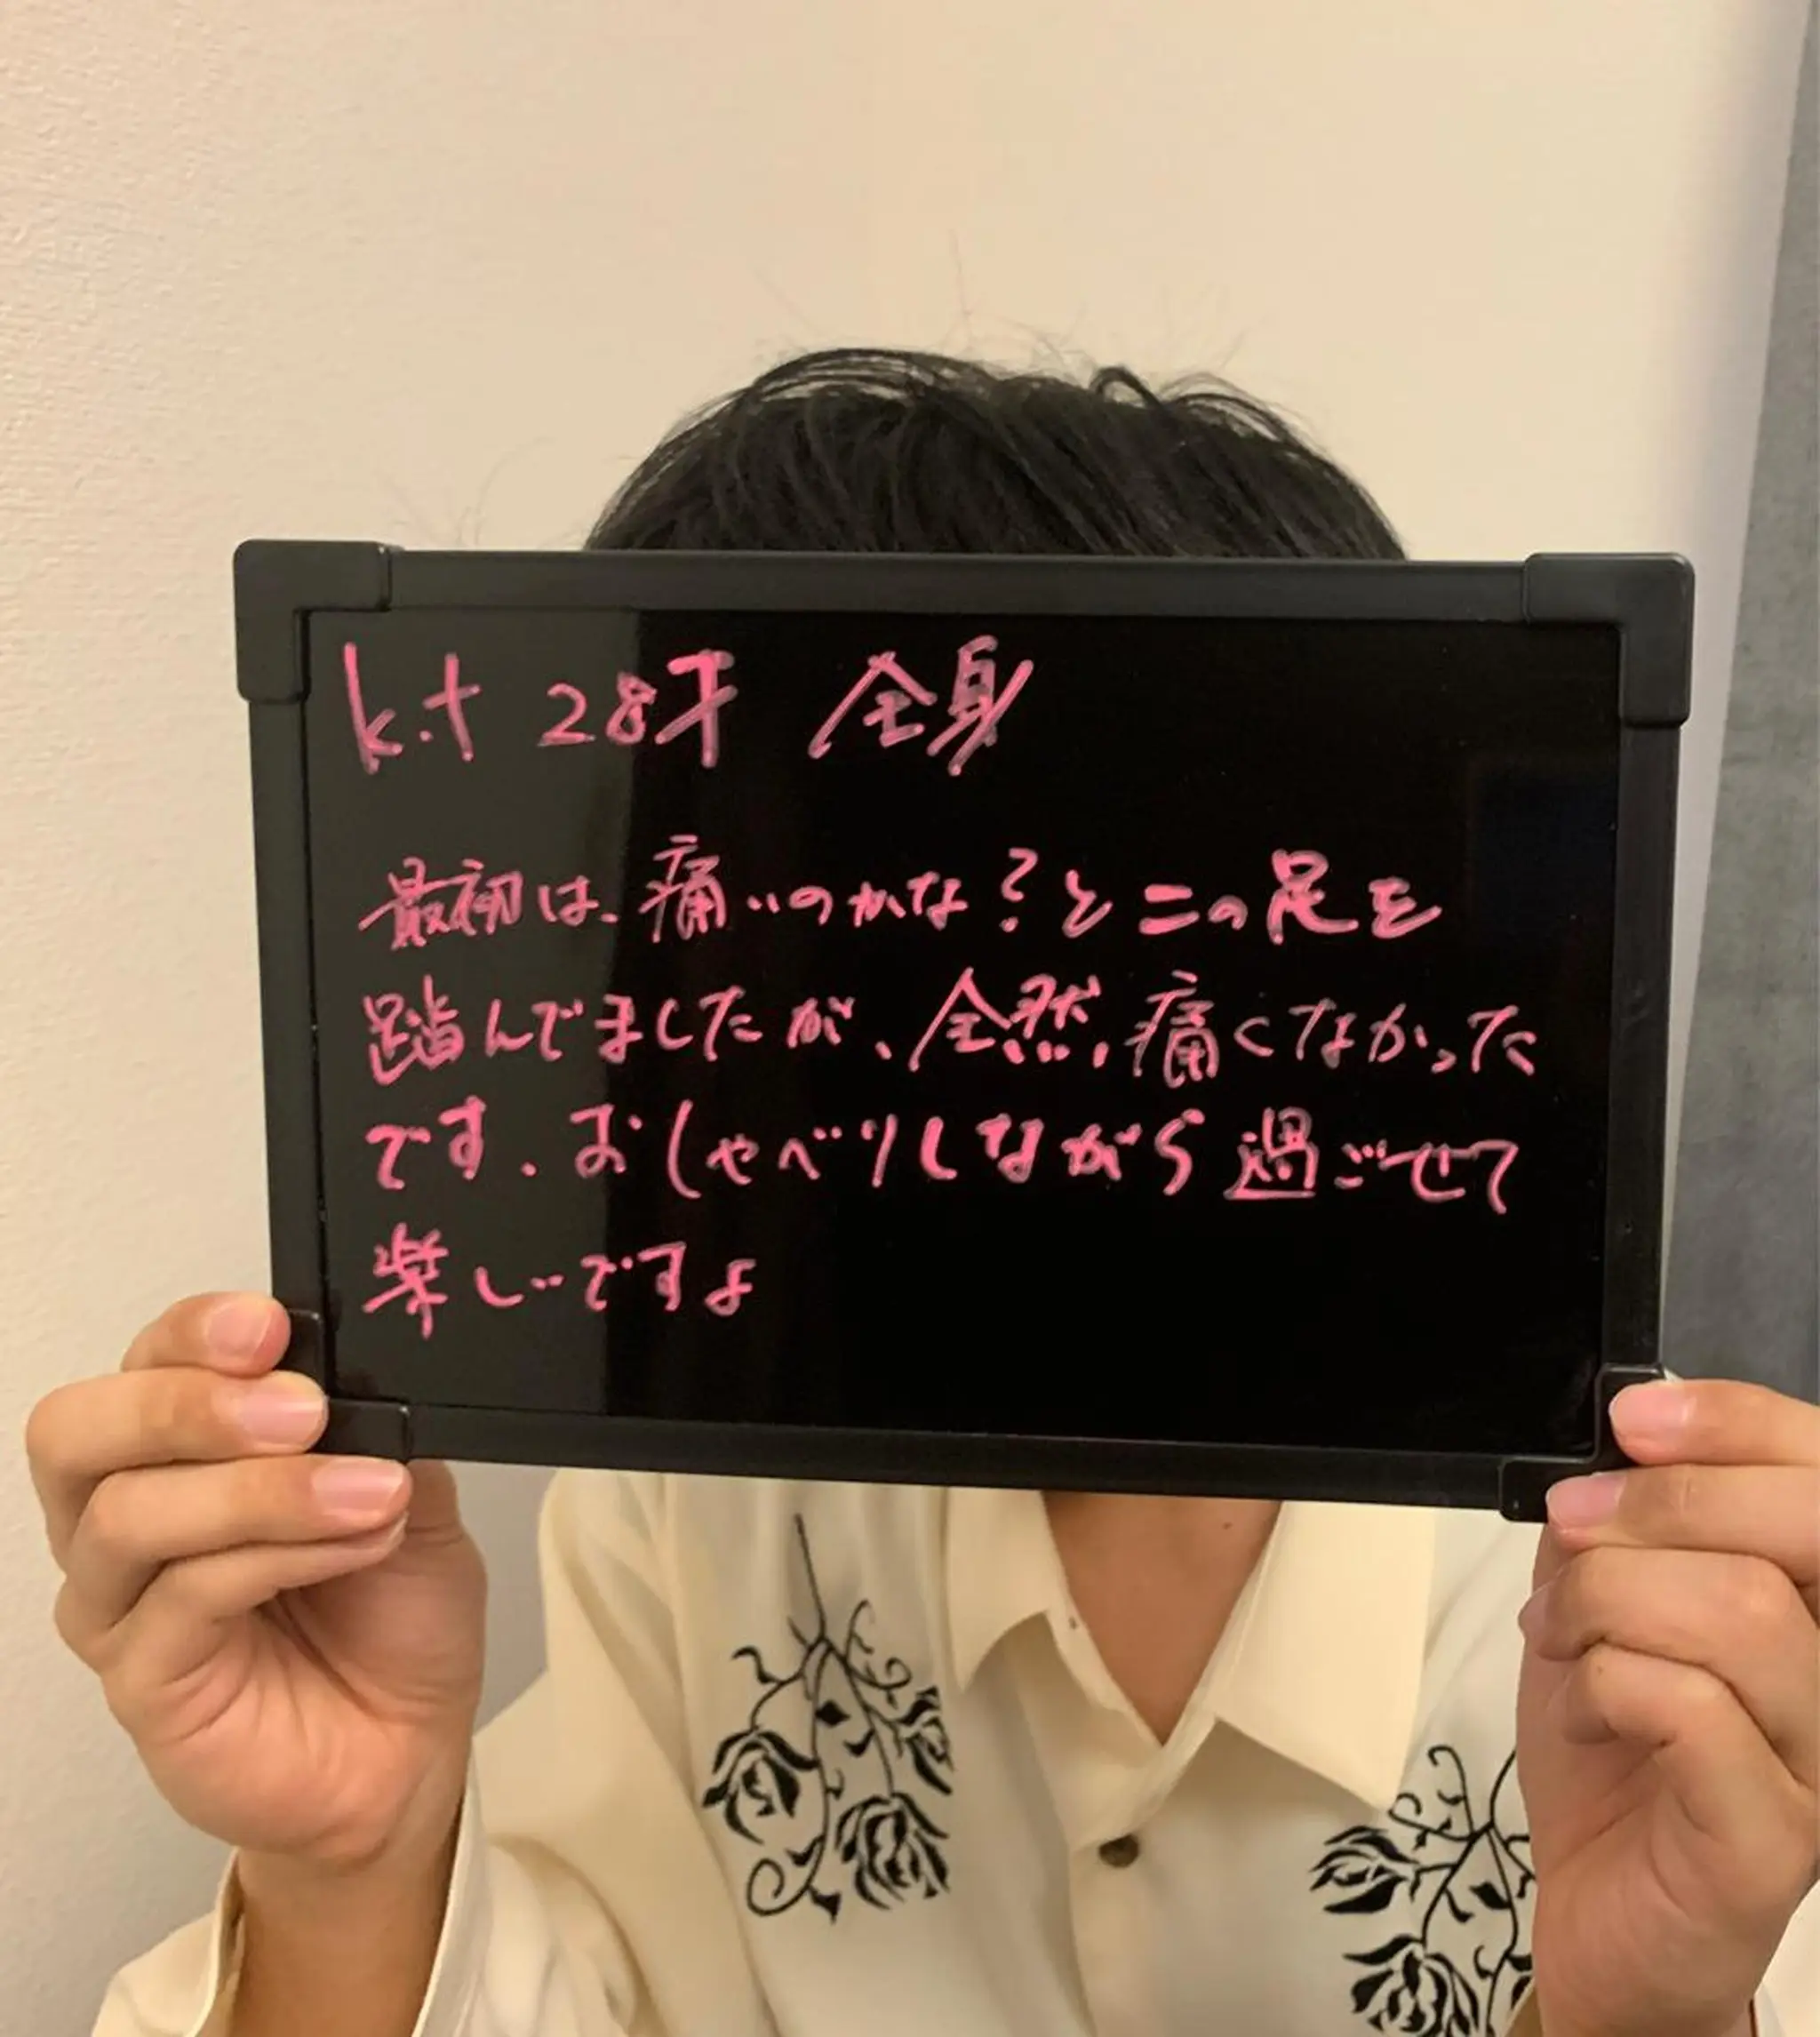 k.t 28才 全身
最初は、痛いのかな?と二の足を
踏んでましたが、全然、痛くなかった
です。おしゃべりしながら過ごせて
楽しいですよ